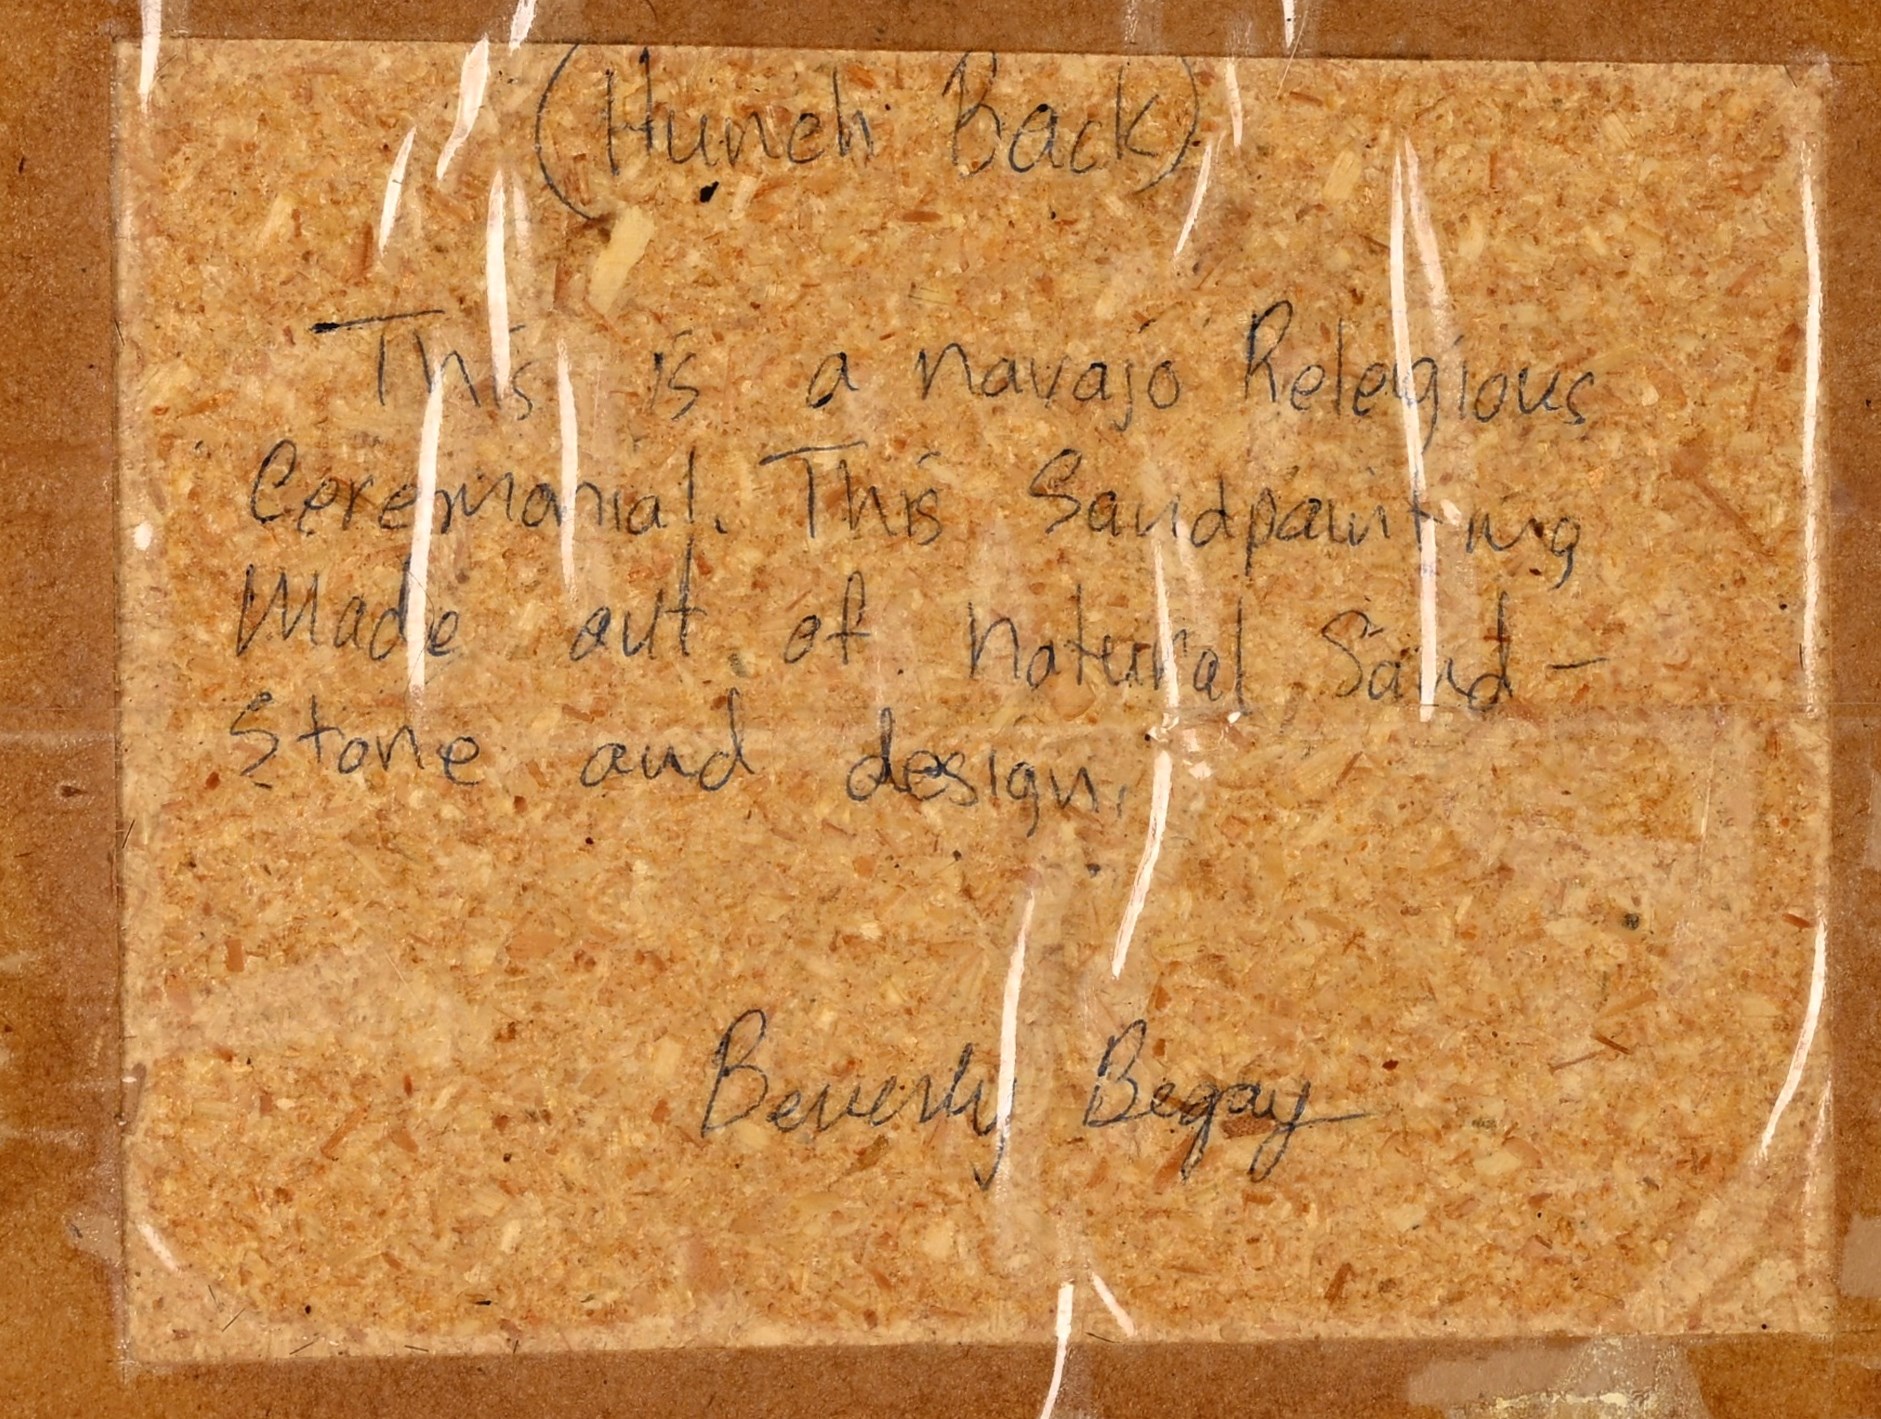 (Hunch Back)
This is a navajo Relegious
Ceremonial. This Sandpainting
Made out of natural Sand-
Stone and design.
Beverly Begay